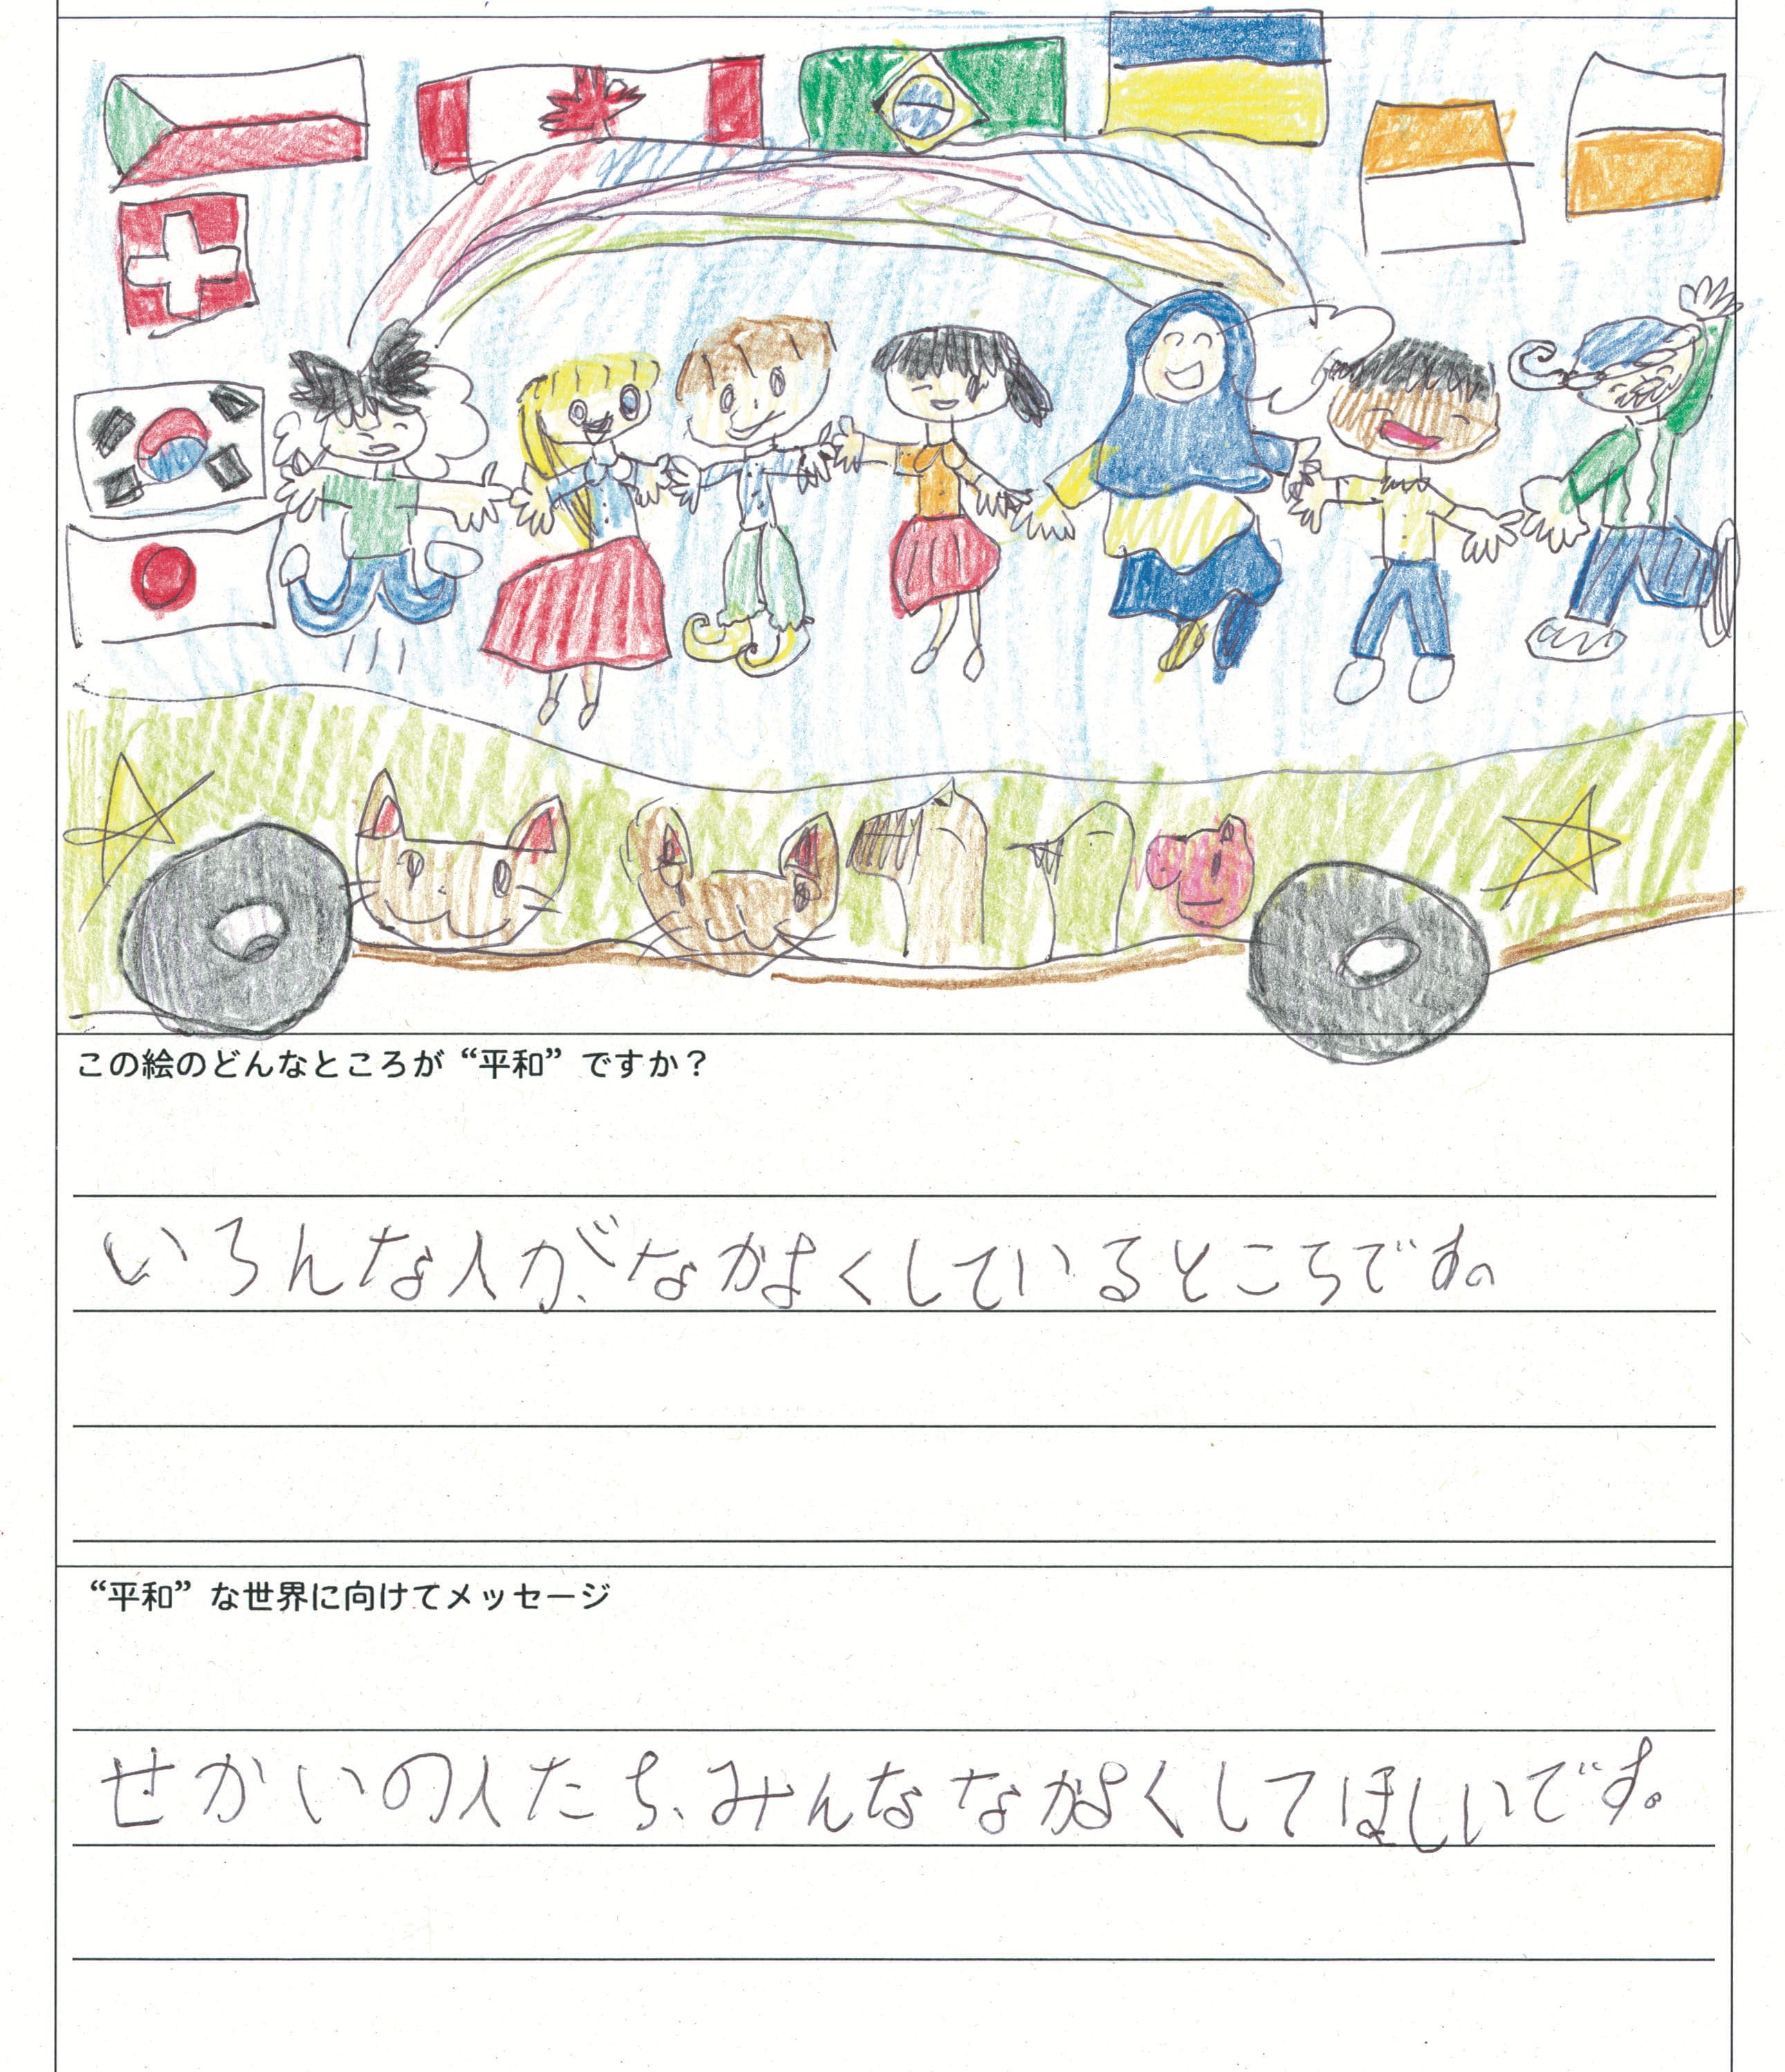 この絵のどんなところが“平和”ですか？
いろんな人が、なかよくしているところです。
“平和”な世界に向けてメッセージ
せかいの人たち、みんななかよくしてほしいです。